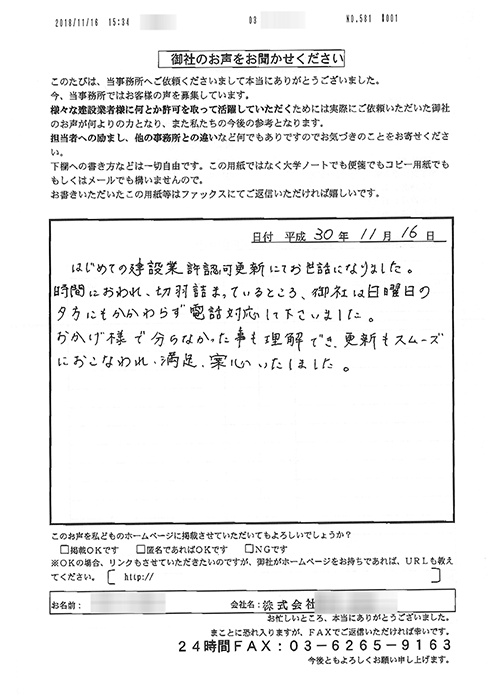 2018/11/16 15:34 03 NO.581 #001
御社のお声をお聞かせください
このたびは、当事務所へご依頼くださいまして本当にありがとうございました。
今、当事務所ではお客様の声を募集しています。
様々な建設業者様に何とか許可を取って活躍していただくためには実際にご依頼いただいた御社
のお声が何よりの力となり、また私たちの今後の参考となります。
担当者への励まし、他の事務所との違いなど何でもありですのでお気づきのことをお寄せくださ
い。
下欄への書き方などは一切自由です。この用紙ではなく大学ノートでも便箋でもコピー用紙でも
もしくはメールでも構いませんので。
お書きいただいたこの用紙等はファックスにてご返信いただければ嬉しいです。
日付 平成 30 年 11 月 16 日
はじめての建設業許認可更新にてお世話になりました。
時間におわれ、切羽詰まっているところ、御社は日曜日の
夕方にもかかわらず電話対応して下さいました。
おかげ様で分らなかった事も理解でき、更新もスムーズ
におこなわれ、満足、安心いたしました。
このお声を私どものホームページに掲載させていただいてもよろしいでしょうか？
□掲載OKです □匿名であればOKです □NGです
※OKの場合、リンクもさせていただきたいのですが、御社がホームページをお持ちであれば、URLも教え
てください。〔 http:// 〕
お名前： 会社名：株式会社
お忙しいところ、本当にありがとうございました。
まことに恐れ入りますが、FAXでご返信いただければ幸いです。
24時間FAX：03-6265-9163
今後ともよろしくお願い申し上げます。